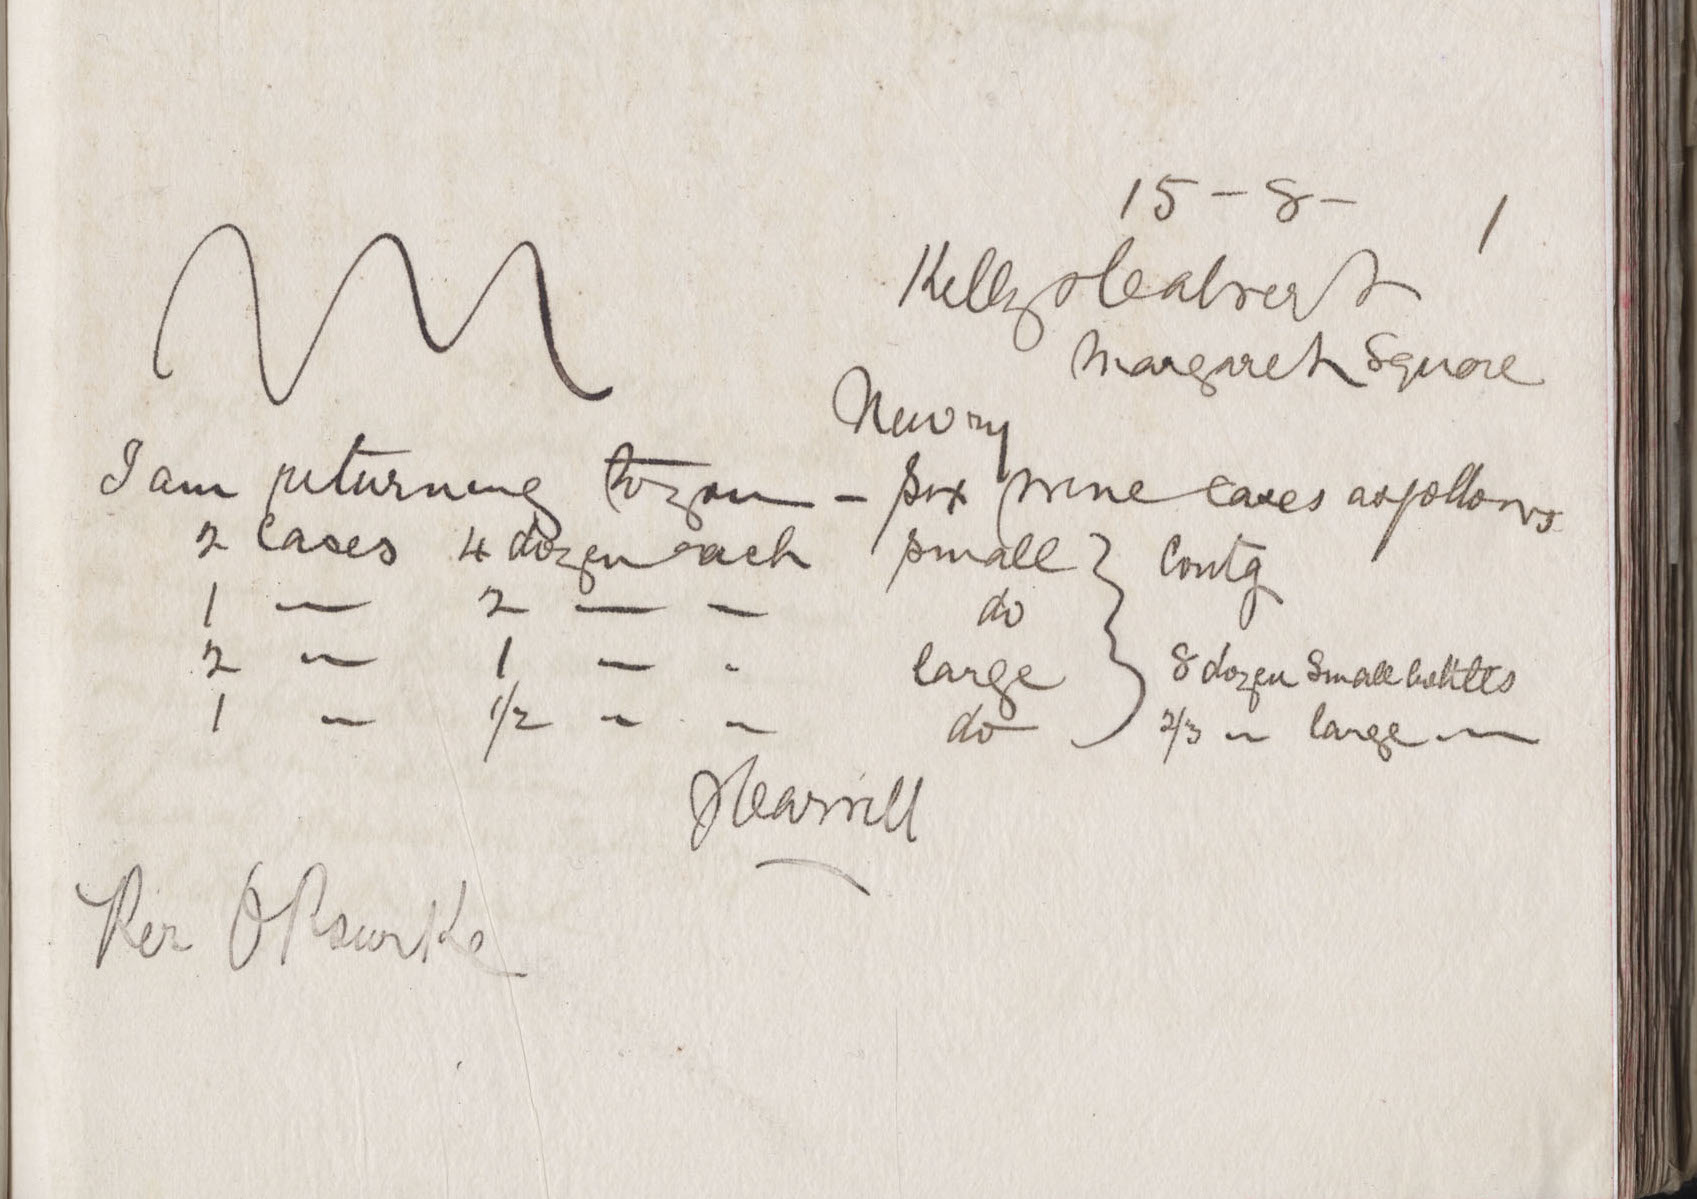 15 - 8 - 1
Kelly
Margaret Square
Newry
I am returning to you - six wine cases as follows
2 Cases 4 dozen each small } Contg
1 — 2 — — do
2 — 1 — - large 8 dozen small bottles
1 — 1/2 — — do 2/3 — large —
Per O'Rourke